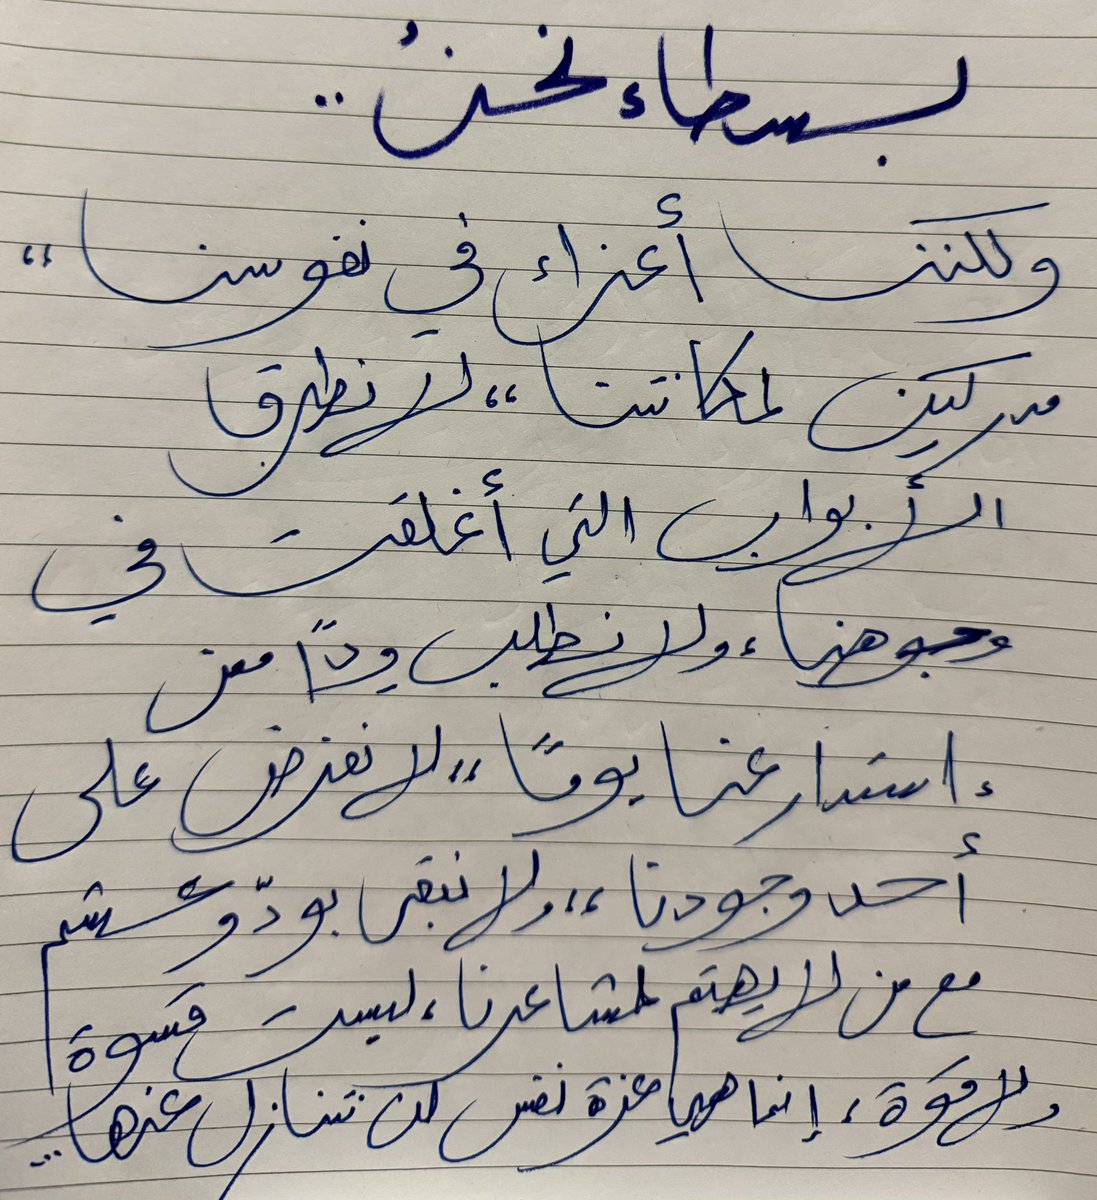 بسطاء نحنُ ..
ولكننا أعزاء في نفوسنا ،،
مدركين لمكانتنا ،، لا نطرق
الأبواب التي أغلقت في
وجوهنا ، ولا نطلب ودًا ممن
استدار عنا يومًا ،، لا نفرض على
أحد وجودنا ،، ولا نبقى بودّ وعشم
مع من لا يهتم لمشاعرنا ، ليست قسوة
ولا قوة ، إنما هي عزة نفس لن نتنازل عنها ...